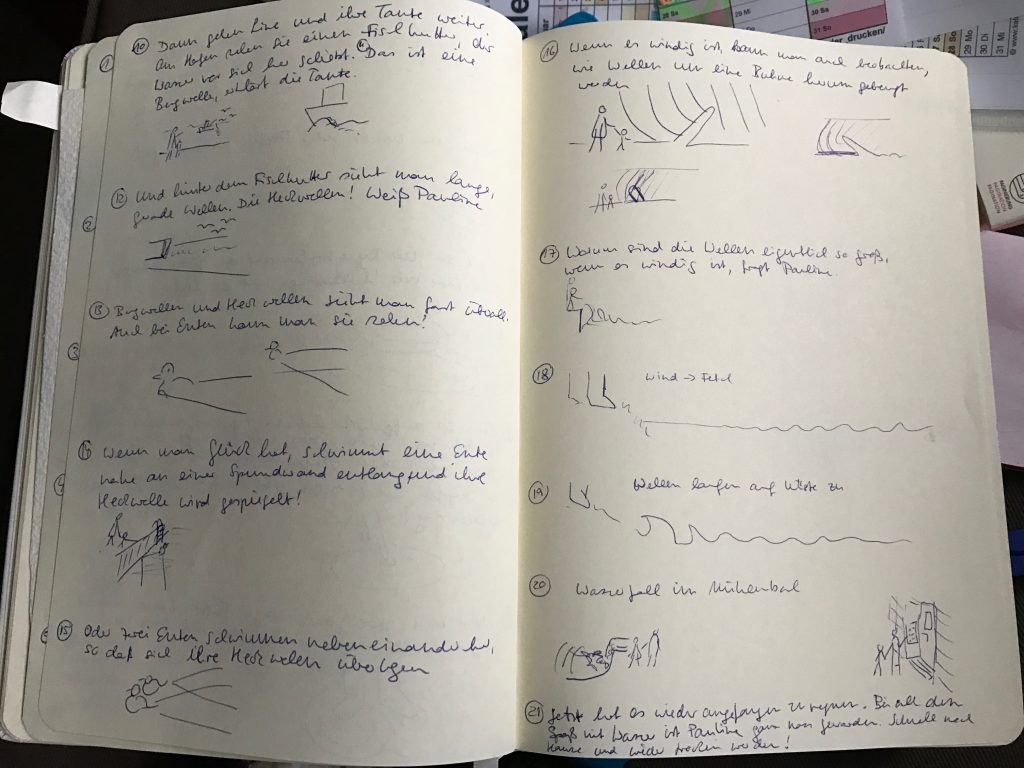 10 Dann gehen Line und ihre Tante weiter
Am Hafen sehen sie einen Fischkutter, der
Wasser vor sich her schiebt. Das ist eine
Bugwelle, erklärt die Tante.
12 Und hinter dem Fischkutter sieht man lange,
gerade Wellen. Die Heckwellen! Weiß Pauline
13 Bugwellen und Heckwellen sieht man fast überall.
Auch bei Enten kann man sie sehen!
Wenn man Glück hat, schwimmt eine Ente
nahe an einer Spundwand entlang und ihre
Heckwelle wird gespiegelt!
15 Oder zwei Enten schwimmen nebeneinander her,
so daß sich ihre Heckwellen überlagern
1
2
3
4
16 Wenn es windig ist, kann man auch beobachten,
wie Wellen um eine Buhne herum gebeugt
werden
17 Warum sind die Wellen eigentlich so groß,
wenn es windig ist, fragt Pauline.
18 Wind → Fetch
19 Wellen laufen auf Küste zu
20 Wasserfall im Mühlenbach
21 Jetzt hat es wieder angefangen zu regnen. Bei all dem
Spaß mit Wasser ist Pauline ganz nass geworden. Schnell nach
Hause und wieder trocken werden!
28 Sa
29 Mi
30 Sa
31 So
_drucken/
28 So
29 Mo
30 Di
31 Mi